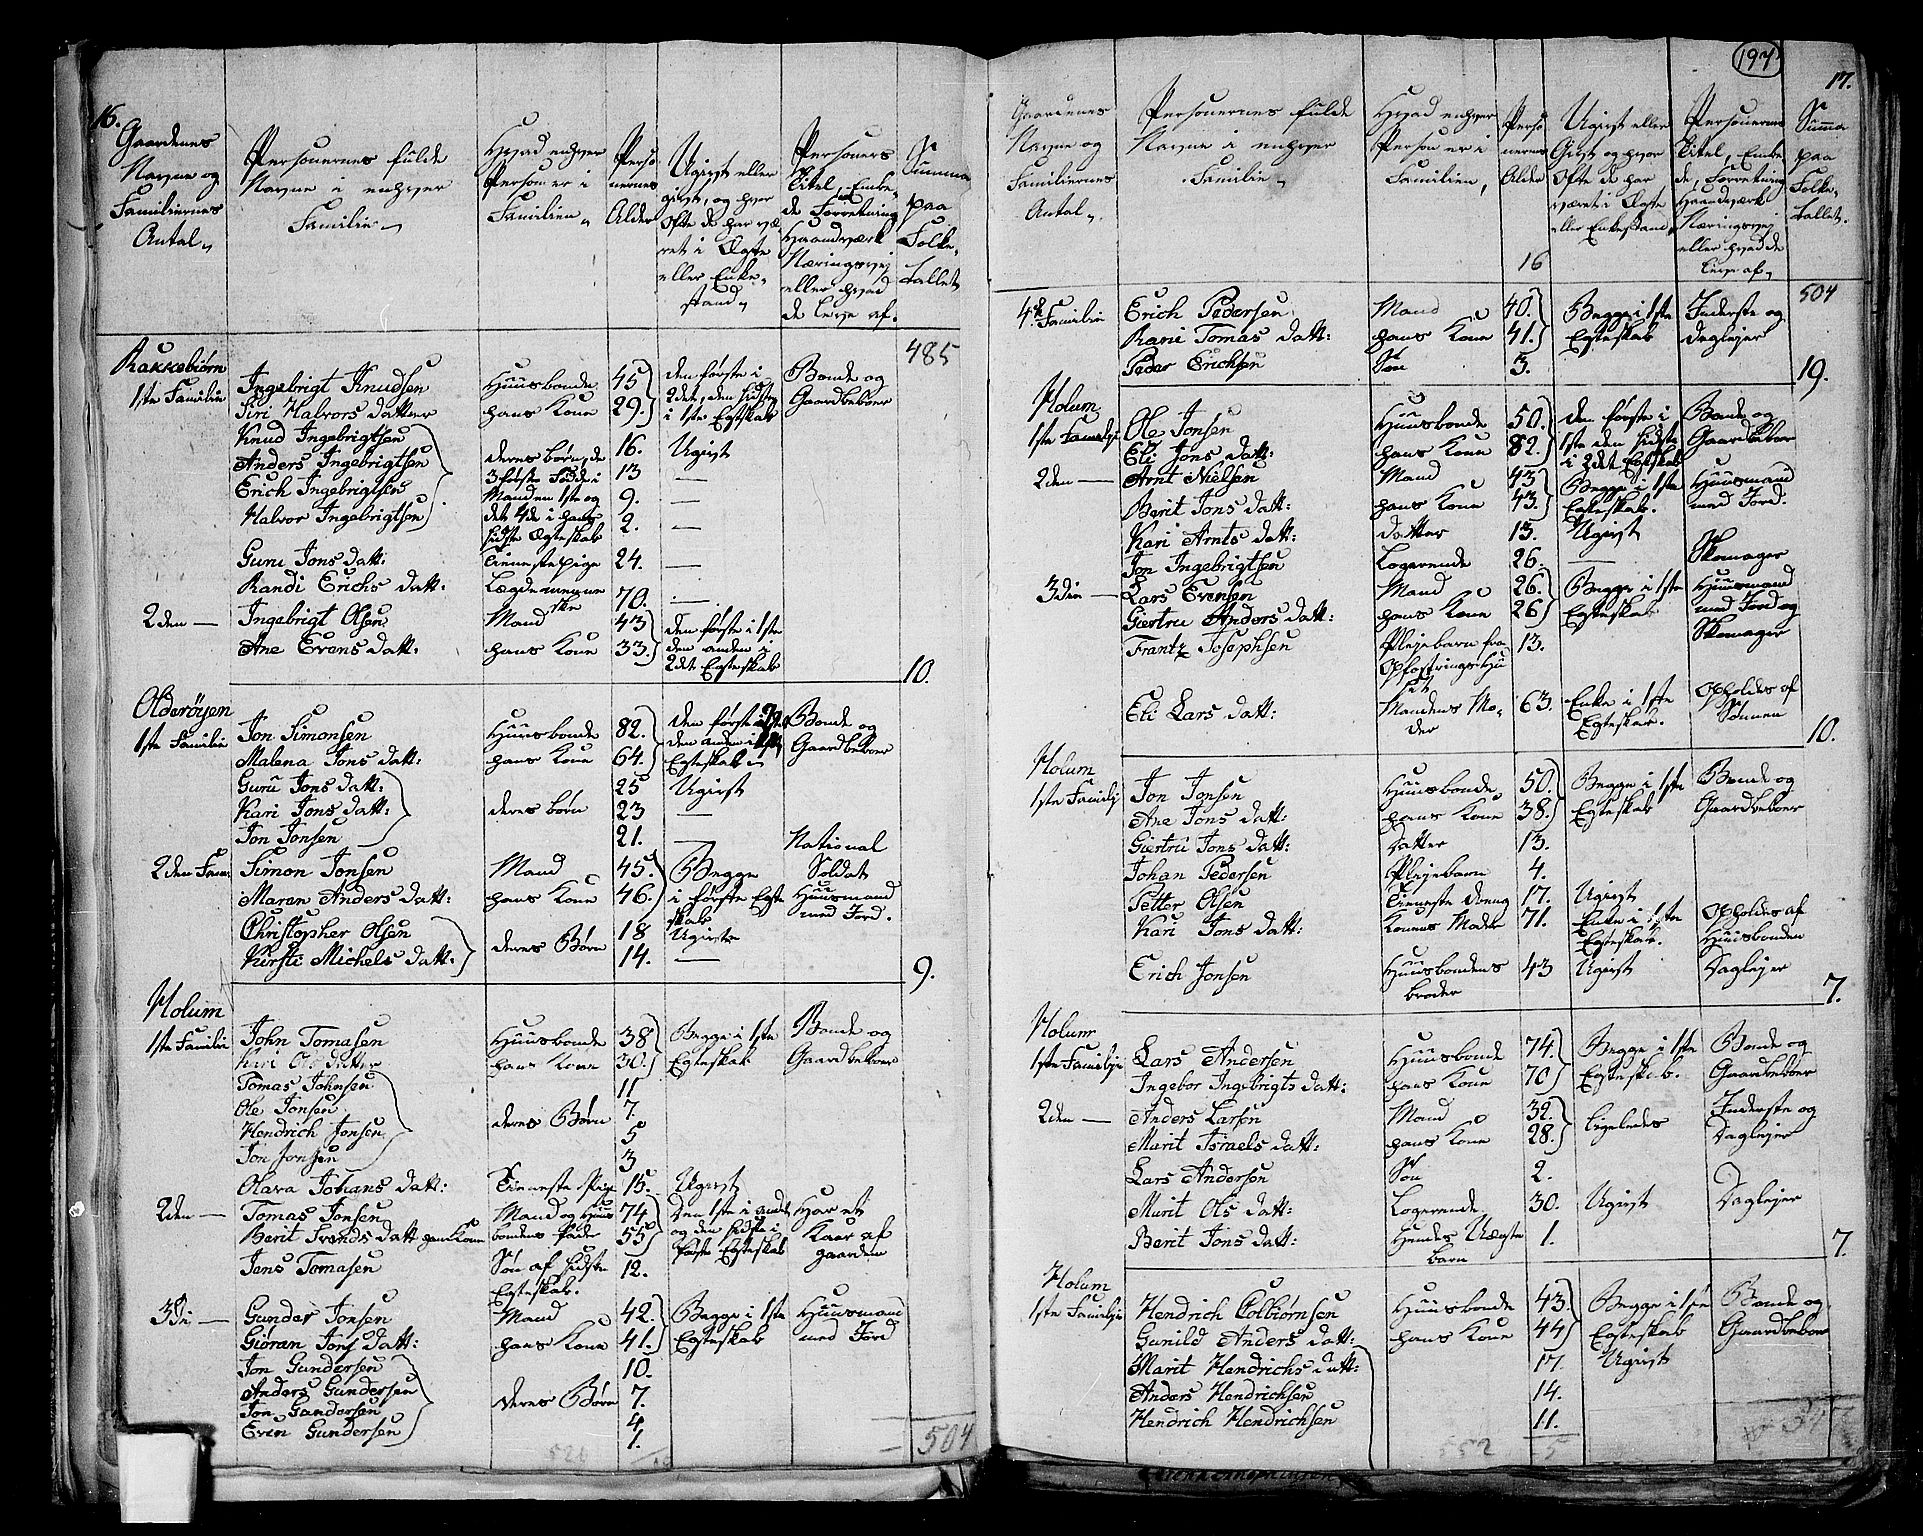 16.
Gaardenes Navne og Familiernes Antal
Personernes fulde Navne i enhver Familie
Hvad enhver Person er i Familien
Personernes Alder
Ugivt eller givt, og hvor ofte de har været i Ægte eller Enkestand
Personers Titel, Embede Forretning Haandværk Næringsvej eller hvad de leve af.
Summa paa Folketallet
485
Rakkebiørn
1ste Familie Ingebrigt Knudsen Huusbonde 45 den første i 2det, den sidste i 1ste Egteskab Bonde og Gaardbeboer
Siri Halvors datter hans Kone 29.
Knud Ingebrigtsen 16. Ugivt
Anders Ingebrigtsen deres børn, de 13 —
Erich Ingebrigtsen 3 første fødde i Manden 1ste og 9. —
Halvor Ingebrigtsen det 4de i hans sidste Ægteskab 2. —
Guru Jons datt: Tieneste pige 24. —
Randi Erichs datt: Lægdemenneske 70. —
2den — Ingebrigt Olsen Mand 43 den første i 1ste den anden i 2det Egteskab
Ane Evens datt: hans Kone 33.
10.
Olderöyen
1ste Familie Jon Simonsen Huusbonde 82. den første i den anden i Egteskab Bonde og Gaardbeboer
Malena Jons datt: hans Kone 64.
Guru Jons datt: 25 Ugivt
Kari Jons datt: deres børn 23 —
Jon Jonsen 21. — National Soldat
2den Fam: Simon Jonsen Mand 45. Begge i første Egteskab Huusmand med Jord.
Maren Anders datt: hans Kone 46.
Christopher Olsen 18 Ugivte
Kirsti Michels datt: deres Børn 14. —
9.
Holum
1ste Familie John Tomasen Huusbonde 38 Begge i 1ste Egteskab Bonde og Gaardbeboer
Kari Ols datter hans Kone 30.
Tomas Johnsen 11
Ole Jonsen 7.
Hendrich Jonsen deres Børn 5
Jon Jonsen 3
Olava Johans datt: Tieneste pige 15. Ugivt
2den — Tomas Jonsen Mand og Huusbondens fader 74 Den 1ste i andet og den sidste i første Egteskab Har et Kaar af gaarden
Berit Svends datt hans Kone 55
Jens Tomasen Søn af sidste Egteskab. 12.
3di — Gunder Jonsen Mand 42. Begge i 1ste Egteskab Huusmand med Jord
Giöran Jons datt: hans Kone 41.
Jon Gundersen 10.
Anders Gundersen deres Børn 7.
Jon Gundersen 4
Even Gundersen 1.
504
197
17.
Gaardenes Navne og Familiernes Antal
Personernes fulde Navne i enhver Familie
Hvad enhver Person er i Familien
Personernes Alder
Ugivt eller Givt og hvor ofte de har været i Ægte eller Enkestand
Personernes Titel, Embede, Forretning Haandværk Næringsvej eller hvad de leve af
Summa paa Folketallet.
16
504
4de Familie Erich Pedersen Mand 40. Begge i 1ste Egteskab Inderste og Daglejer
Rani Tomas datt: hans Kone 41.
Peder Erichsen Søn 3.
19.
Holum
1ste Familje Ole Jonsen Huusbonde 50. den første i 1ste den sidste i 2det Egteskab Bonde og Gaardbeboer
Eli Jons datt: hans Kone 82.
2den — Arnt Nielsen Mand 43 Begge i 1ste Egteskab. Huusmand med Jord.
Berit Jons datt: hans Kone 43.
Kari Arnts datt: datter 13. Ugivt
Jon Ingebrigtsen Logerende 26. — Skomager
3die — Lars Evensen Mand 26. Begge i 1ste Egteskab Huusmand med Jord og Skomager
Giertru Anders datt: hans Kone 26
Frantz Josephsen Plejebarn fra Opfostringshuset 13.
Eli Lars datt: Mandens Moder 63. Enke i 1ste Egteskab. Opholdes af Sönnen
10.
Holum
1ste Familj Jon Jonsen Huusbonde 50. Begge i 1ste Egteskab Bonde og Gaardbeboer
Ane Jons datt: hans Kone 38.
Giertru Jons datt: datter 13.
Johan Pedersen Plejebarn 4.
Petter Olsen Tieneste dreng 17. Ugivt
Kari Jons datt: Konens Moder 71. Enke i 1ste Egteskab. Opholdes af Huusbonden
Erich Jonsen Huusbondens broder 43 Ugivt Daglejer
7.
Holum
1ste Familje Lars Andersen Huusbonde 74. Begge i 1ste Egteskab. Bonde og Gaardbeboer
Ingebor Ingebrigts datt: hans Kone 70
2den — Anders Larsen Mand 32. Ligeledes Inderste og Daglejer
Marit Israels datt: hans Kone 28.
Lars Andersen Søn 2.
Marit Ols datt: Logerende 30. Ugivt Daglejer
Berit Jons datt: Hendes Uægte barn 1.
7.
Holum
1ste Familje Hendrich Colbiørnsen Huusbonde 43. Begge i 1ste Egteskab Bonde og Gaardbeboer
Gunild Anders datt: hans Kone 44
Marit Hendrichs datt: 17. Ugivt
Anders Hendrichsen 14.
Hendrich Hendrichsen 11.
552
5